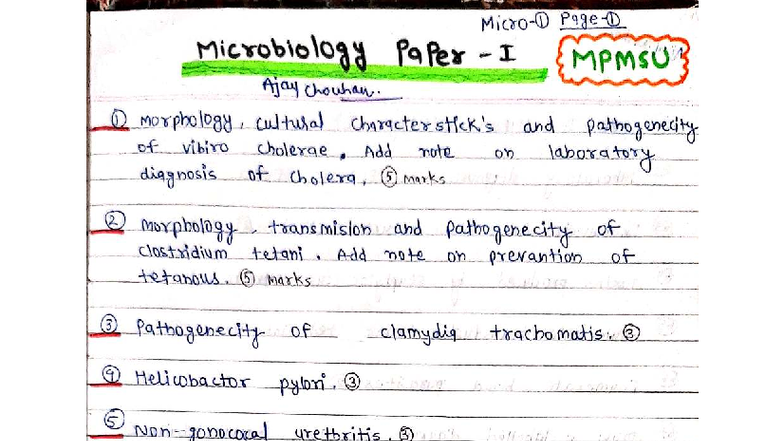 Micro-① Page-①
Microbiology Paper-I
MPMSU
Ajay Chouhan.
① Morphology, cultural characterstick's and pathogenecity
of vibiro cholerae. Add note on laboratory
diagnosis of cholera. ⑤ marks
② Morphology, transmision and pathogenecity of
clostridium tetani. Add note on prevantion of
tetanous. ⑤ marks
③ Pathogenecity of clamydia trachomatis. ③
④ Helicobactor pylori. ③
⑤ Non-gonococal urethritis. ③